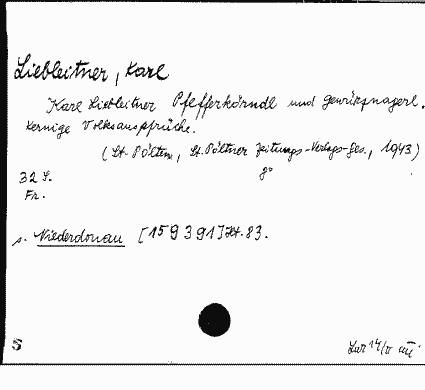 Liebleitner, Karl
Karl Liebleitner Pfefferkörndl und Gewürznagerl.
Kernige Volksaussprüche.
(St. Pölten, St. Pöltner Zeitungs-Verlags-Ges., 1943)
32 S. 8°
Fr.
s. Niederdonau [159391] Ht. 83.
S